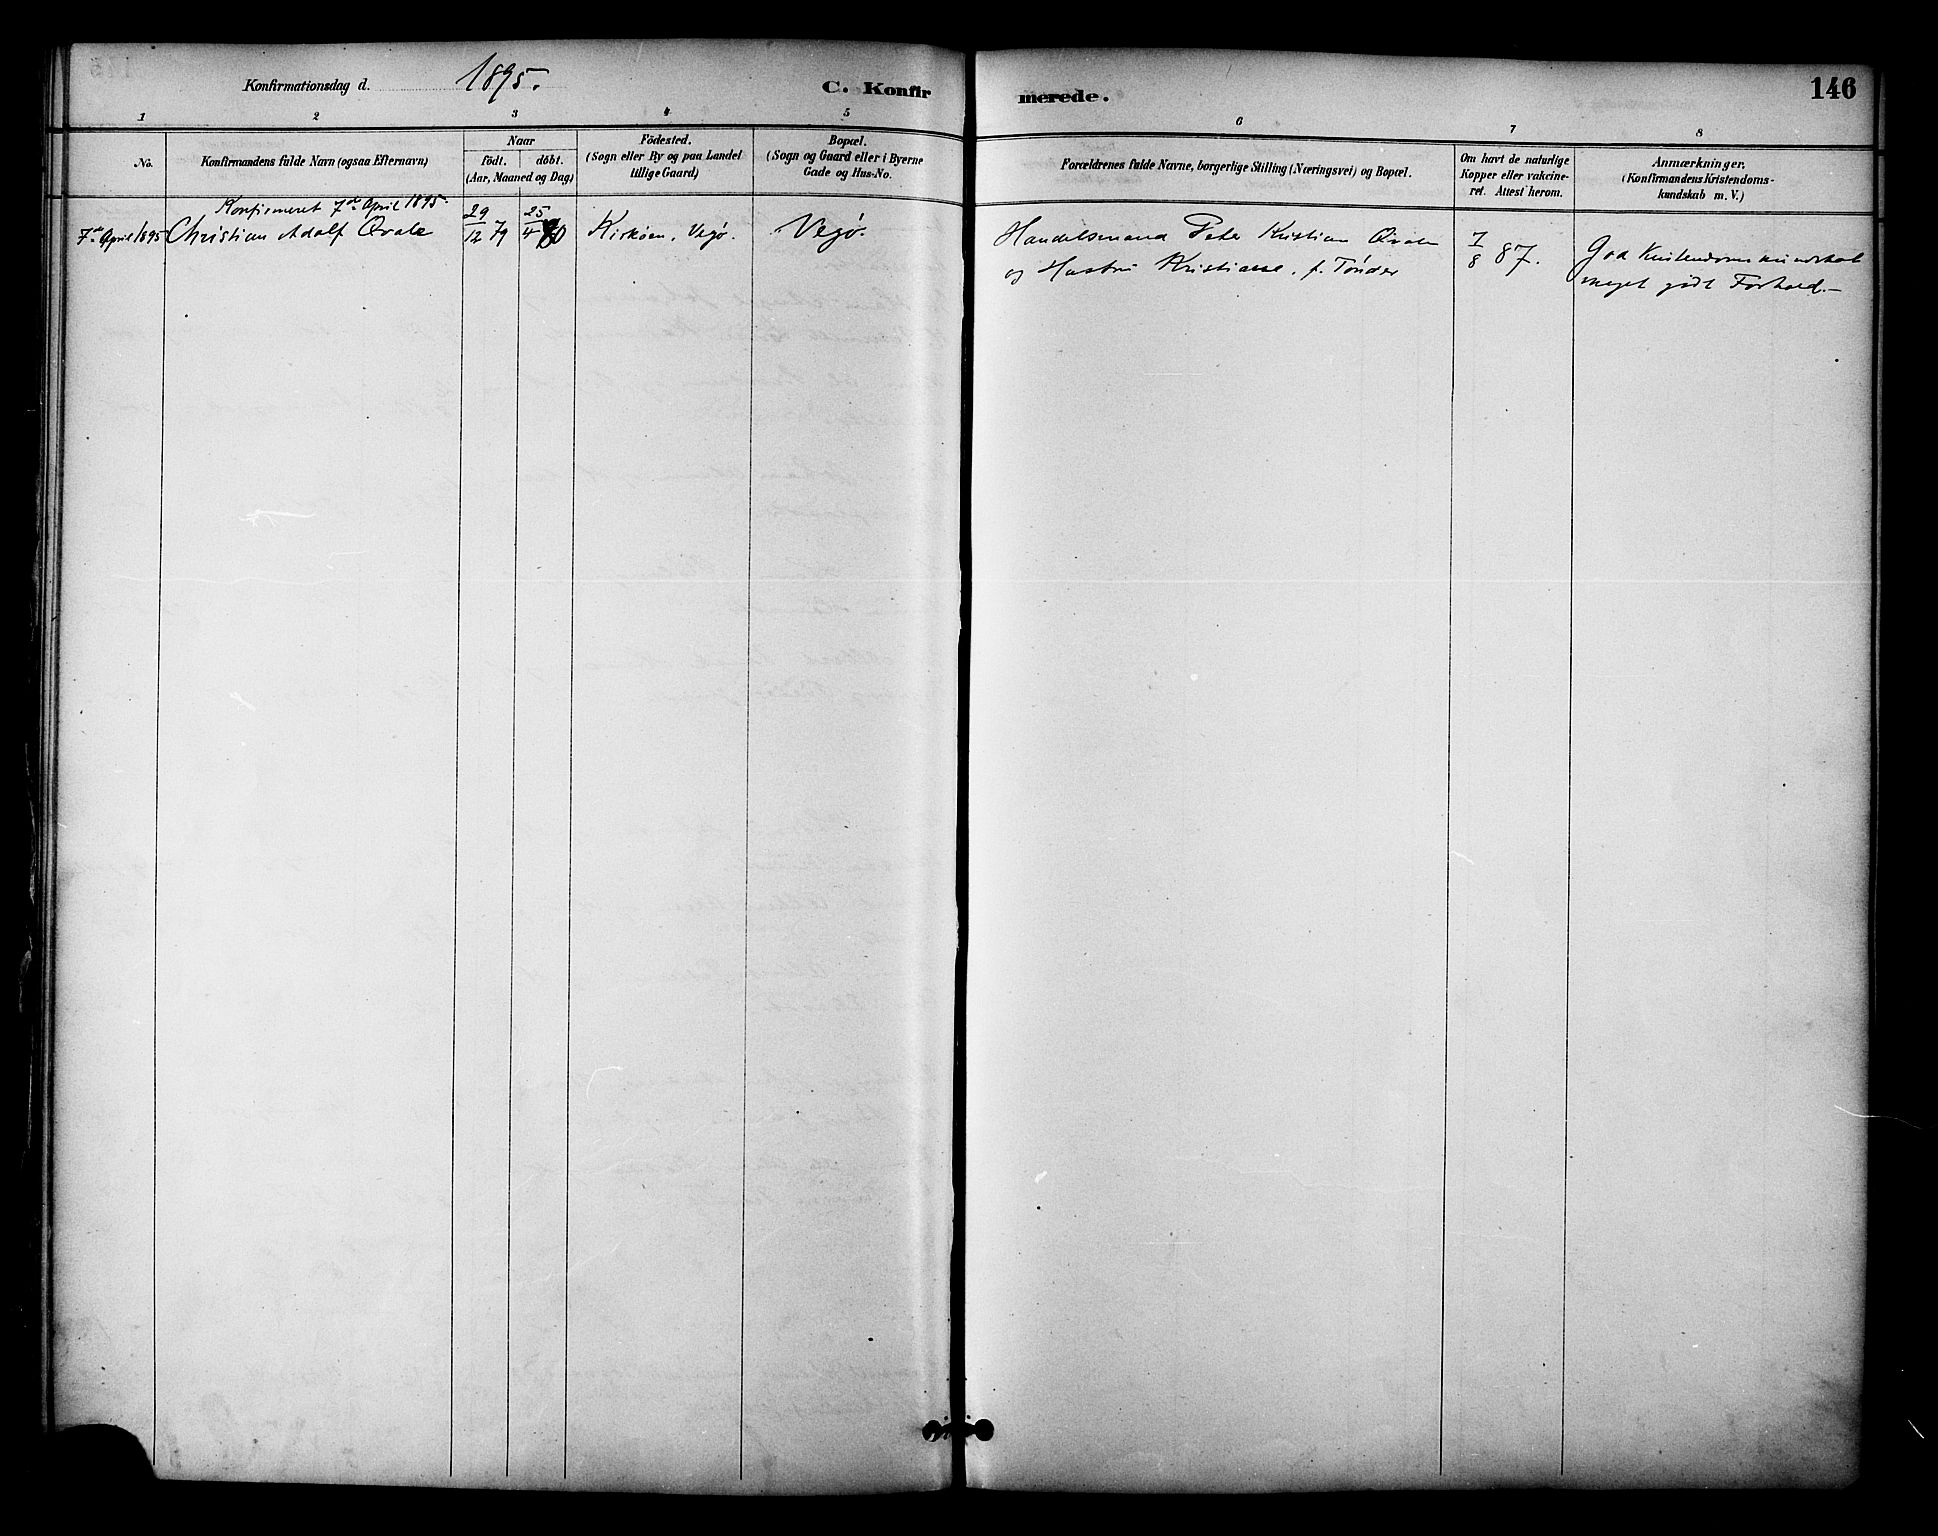 Konfirmationsdag d. 1895.
C. Konfirmerede.
146
1 2 3 4 5 6 7 8
No.
Konfirmandens fulde Navn (ogsaa Efternavn)
Naar
födt. döbt.
(Aar, Maaned og Dag)
Födested.
(Sogn eller By og paa Landet
tillige Gaard)
Bopæl.
(Sogn og Gaard eller i Byerne
Gade og Hus-No.
Forældrenes fulde Navne, borgerlige Stilling (Næringsvei) og Bopæl.
Om havt de naturlige
Kopper eller vakcine-
ret. Attest herom.
Anmærkninger.
(Konfirmandens Kristendoms-
kundskab m. V.)
Konfirmeret 7de April 1895.
7de April 1895 Christian Adolf Qvale 29/12 79 25/4 80 Kirköen, Vegø. Vegø.
Handelsmand Peter Kristian Qvale
og Hustru Kristiane, f. Tönder
7/8 87.
God Kristendomskundskab
meget godt Forhold.-